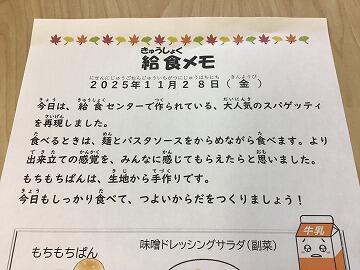 きゅうしょく
給食メモ
にせんにじゅうごねんじゅういちがつにじゅうはちにち　きんようび
２０２５年１１月２８日（金）
きょう　きゅうしょく　つく　だいにんき
今日は、給食センターで作られている、大人気のスパゲッティ
さいげん
を再現しました。
た　めん　た
食べるときは、麺とパスタソースをからめながら食べます。より
できた　かんかく　かん　おも
出来立ての感覚を、みんなに感じてもらえたらと思いました。
きじ　てづく
もちもちぱんは、生地から手作りです。
きょう　た
今日もしっかり食べて、つよいからだをつくりましょう！
牛乳
もちもちぱん
味噌ドレッシングサラダ（副菜）